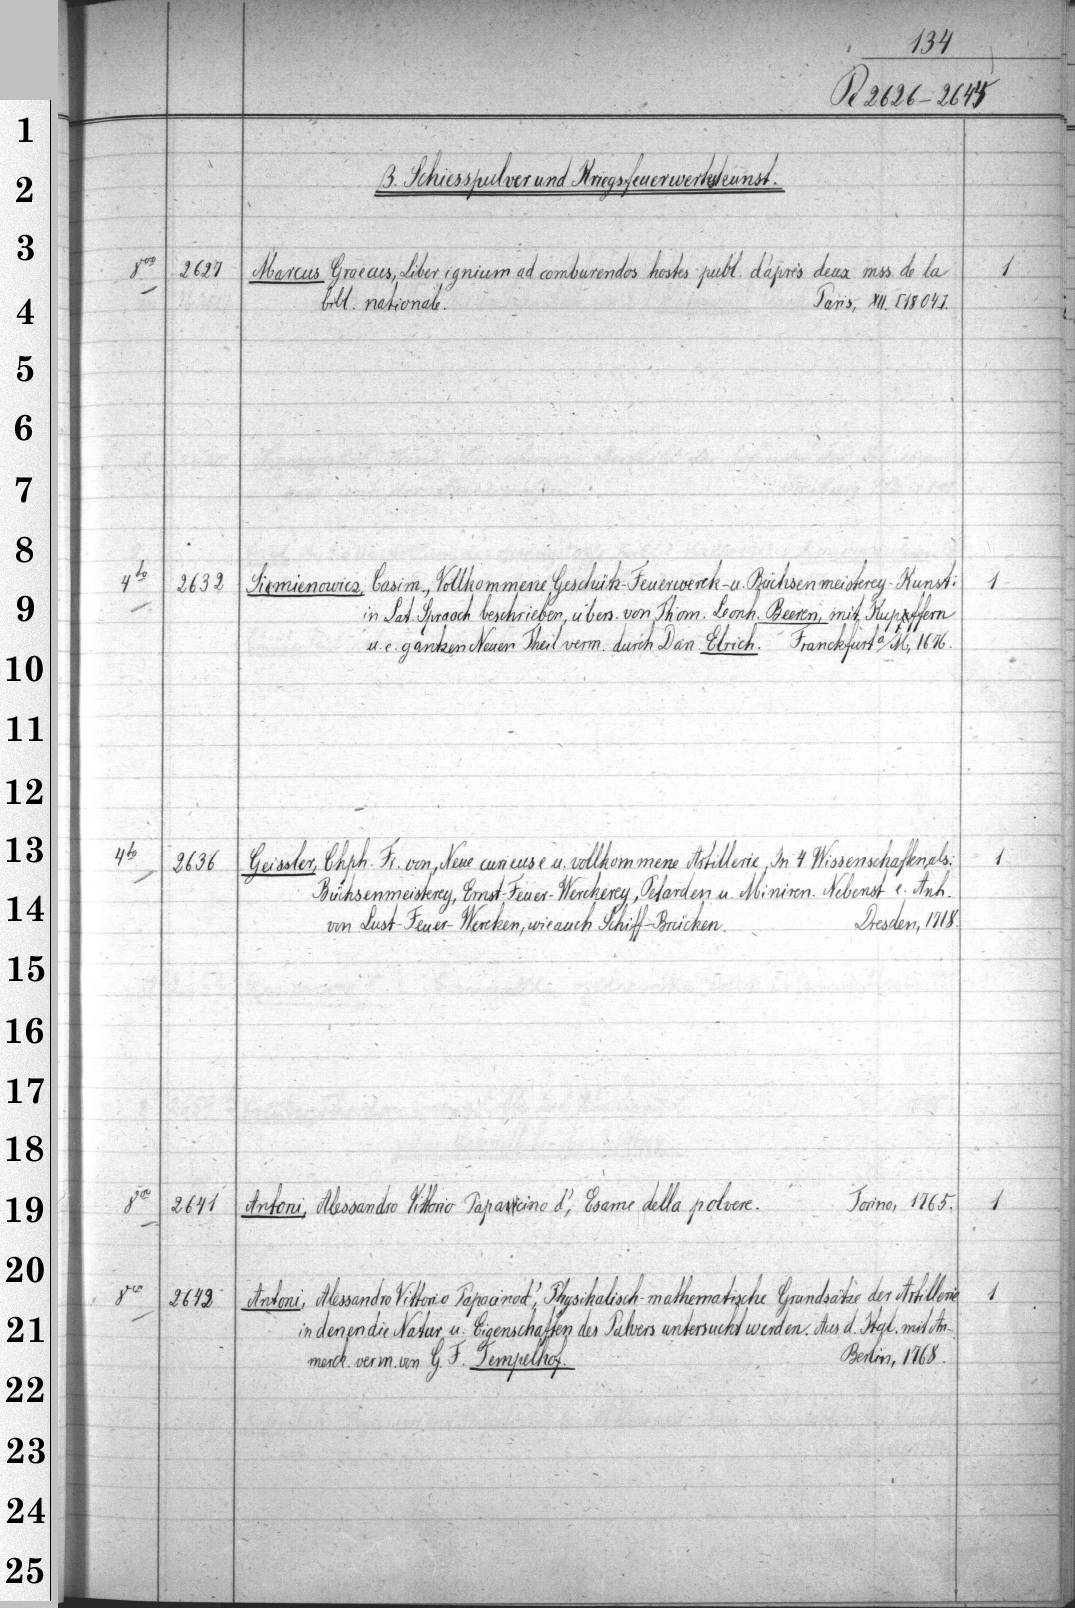 134
R 2626-2645
3. Schiesspulver und Kriegsfeuerwerkskunst.
8vo 2627 Marcus Graecus, Liber ignium ad comburendos hostes publ. d'après deux mss. de la 1
bibl. nationale. Paris, XII. [1804].
4to 2632 Siemienowicz, Casim., Vollkommene Geschütz-Feuerwerck- u. Büchsenmeisterey-Kunst: 1
in Lat. Spraach beschrieben, übers. von Thom. Leonh. Beeren, mit Kupffern
u. e. gantzen Neuen Theil verm. durch Dan. Elrich. Franckfurt a/M, 1676.
4to 2636 Geissler, Chph. Fr. von, Neue curieuse u. vollkommene Artillerie, In 4 Wissenschafften als: 1
Büchsenmeisterey, Ernst-Feuer-Werckerey, Petarden u. Miniren. Nebenst e. Anh.
von Lust-Feuer-Wercken, wie auch Schiff-Brücken. Dresden, 1718.
8vo 2641 Antoni, Alessandro Vittorio Papacino d', Esame della polvere. Torino, 1765. 1
8vo 2642 Antoni, Alessandro Vittorio Papacino d', Physikalisch-mathematische Grundsätze der Artillerie 1
in denen die Natur u. Eigenschaften des Pulvers untersucht werden. Aus d. Itgl. mit An-
merck. verm. von G. F. Tempelhof. Berlin, 1768.
1
2
3
4
5
6
7
8
9
10
11
12
13
14
15
16
17
18
19
20
21
22
23
24
25